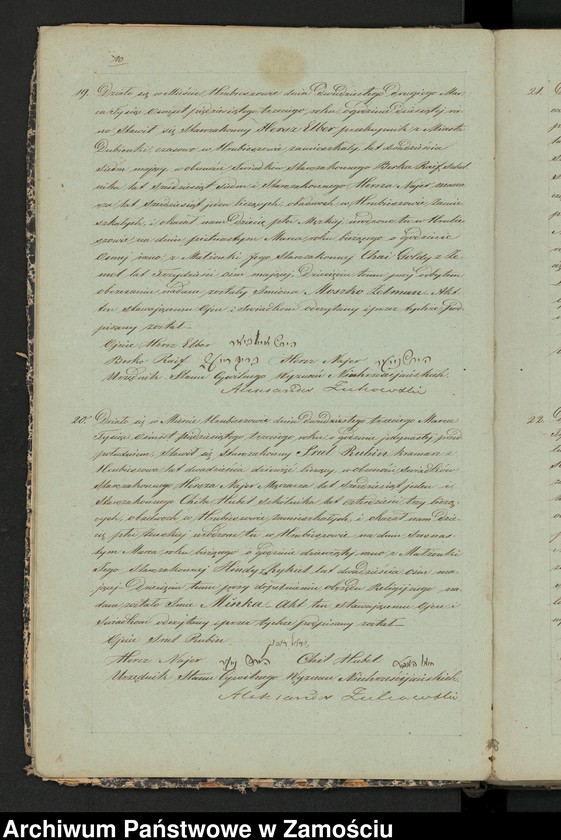 10.
19. Działo się w Mieście Hrubieszowie dnia dwudziestego drugiego Mar-
ca tysiąc ośmset pięćdziesiątego trzeciego roku o godzinie dziesiątej ra-
no Stawił się Starozakonny Hersz Elber przekupnik z Miasta
Dubienki czasowo w Hrubieszowie zamieszkały lat dwadzieścia
siedm mający w obecności świadków Starozakonnego Berka Raif szkol-
nika lat sześćdziesiąt siedm i Starozakonnego Hersza Major
lat sześćdziesiąt jeden liczących, obudwóch w Hrubieszowie zamie-
szkałych, i okazał nam Dziecię płci Męzkiej urodzone tu w Hrubie-
szowie na dniu piętnastym Marca roku bieżącego o godzinie
ósmej z Małżonki Jego Starozakonnej Chai Goldy z
lat dwadzieścia ośm mającej. Dziecięciu temu przy odbytem
obrzezaniu nadane zostały Imiona Moszko Zelman. Akt
ten stawającemu Ojcu i świadkom odczytany i przez tychże Pod-
pisany został.—
Ojciec Hersz Elber
Berko Raif Hersz Major
Urzędnik Stanu Cywilnego Wyznań Niechrześcijańskich.
Aleksander Żukowski
20. Działo się w Mieście Hrubieszowie dnia dwudziestego trzeciego Marca
tysiąc ośmset pięćdziesiątego trzeciego roku o godzinie jedynastej przed
południem. Stawił się Starozakonny Srul Rubin kramarz z
Hrubieszowa lat dwadzieścia dziewięć liczący w obecności świadków
Starozakonnego Hersza Major lat sześćdziesiąt jeden i
Starozakonnego Chila Hubel szkolnika lat czterdzieści trzy liczą-
cych, obudwóch w Hrubieszowie zamieszkałych, i okazał nam Dzie-
cię płci żeńskiej urodzone tu w Hrubieszowie na dniu
Marca roku bieżącego o godzinie dziewiątej z Małżonki
Jego Starozakonnej Hindy z lat dwadzieścia ośm ma-
jącej. Dziecięciu temu przy dopełnieniu obrzędu Religijnego na-
dane zostało Imie Minka. Akt ten stawającemu Ojcu i
świadkom odczytany i przez tychże podpisany został.—
Ojciec Srul Rubin
Hersz Major Chil Hubel
Urzędnik Stanu Cywilnego Wyznań Niechrześcijańskich.
Aleksander Żukowski
21.
22.
Archiwum Państwowe w Zamościu